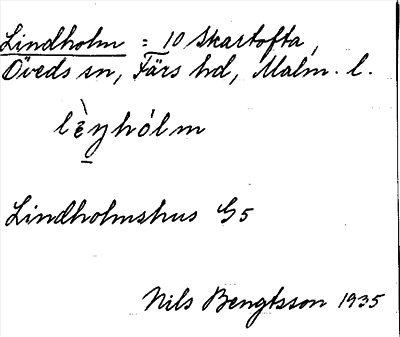 Lindholm = 10 Skartofta,
Öveds sn, Färs hd, Malm. l.
lèyhólm
Lindholmshus G5
Nils Bengtsson 1935